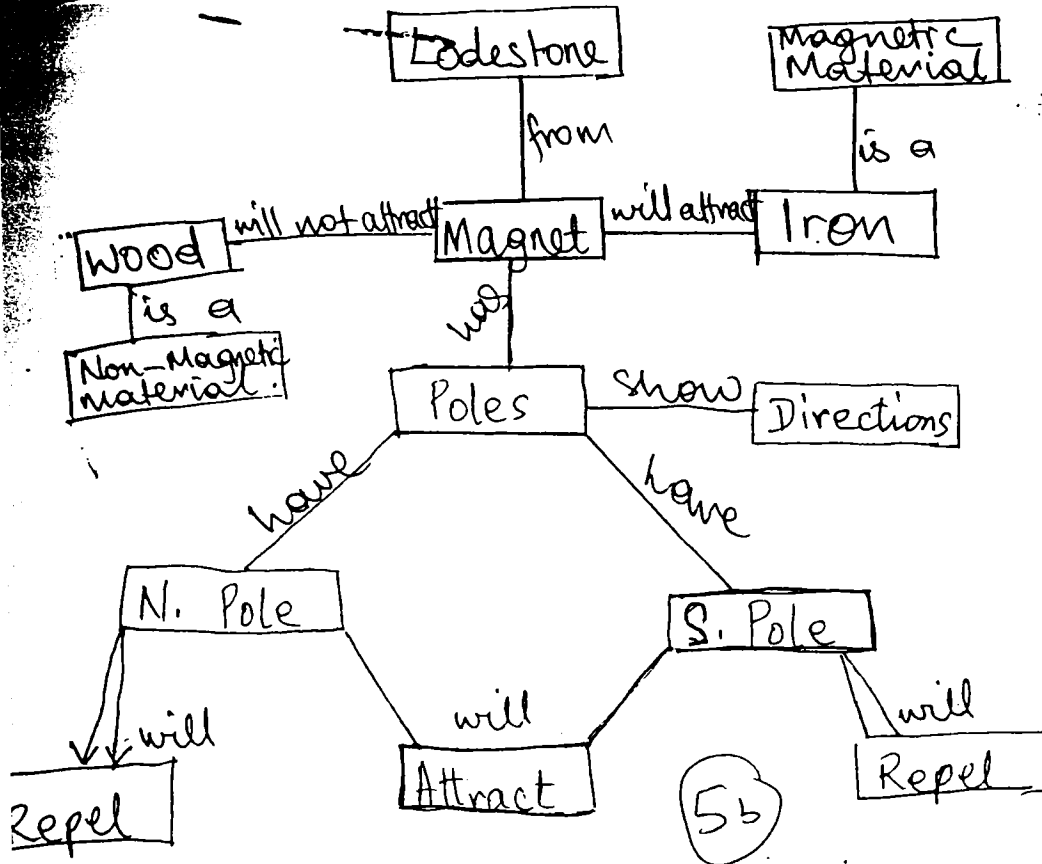 Lodestone
Magnetic
Material
from
is a
Wood
will not attract
Magnet
will attract
Iron
is a
has
Non-Magnetic
Material.
Poles
show
Directions
have
have
N. Pole
S. Pole
will
will
will
Repel
Attract
5b
Repel